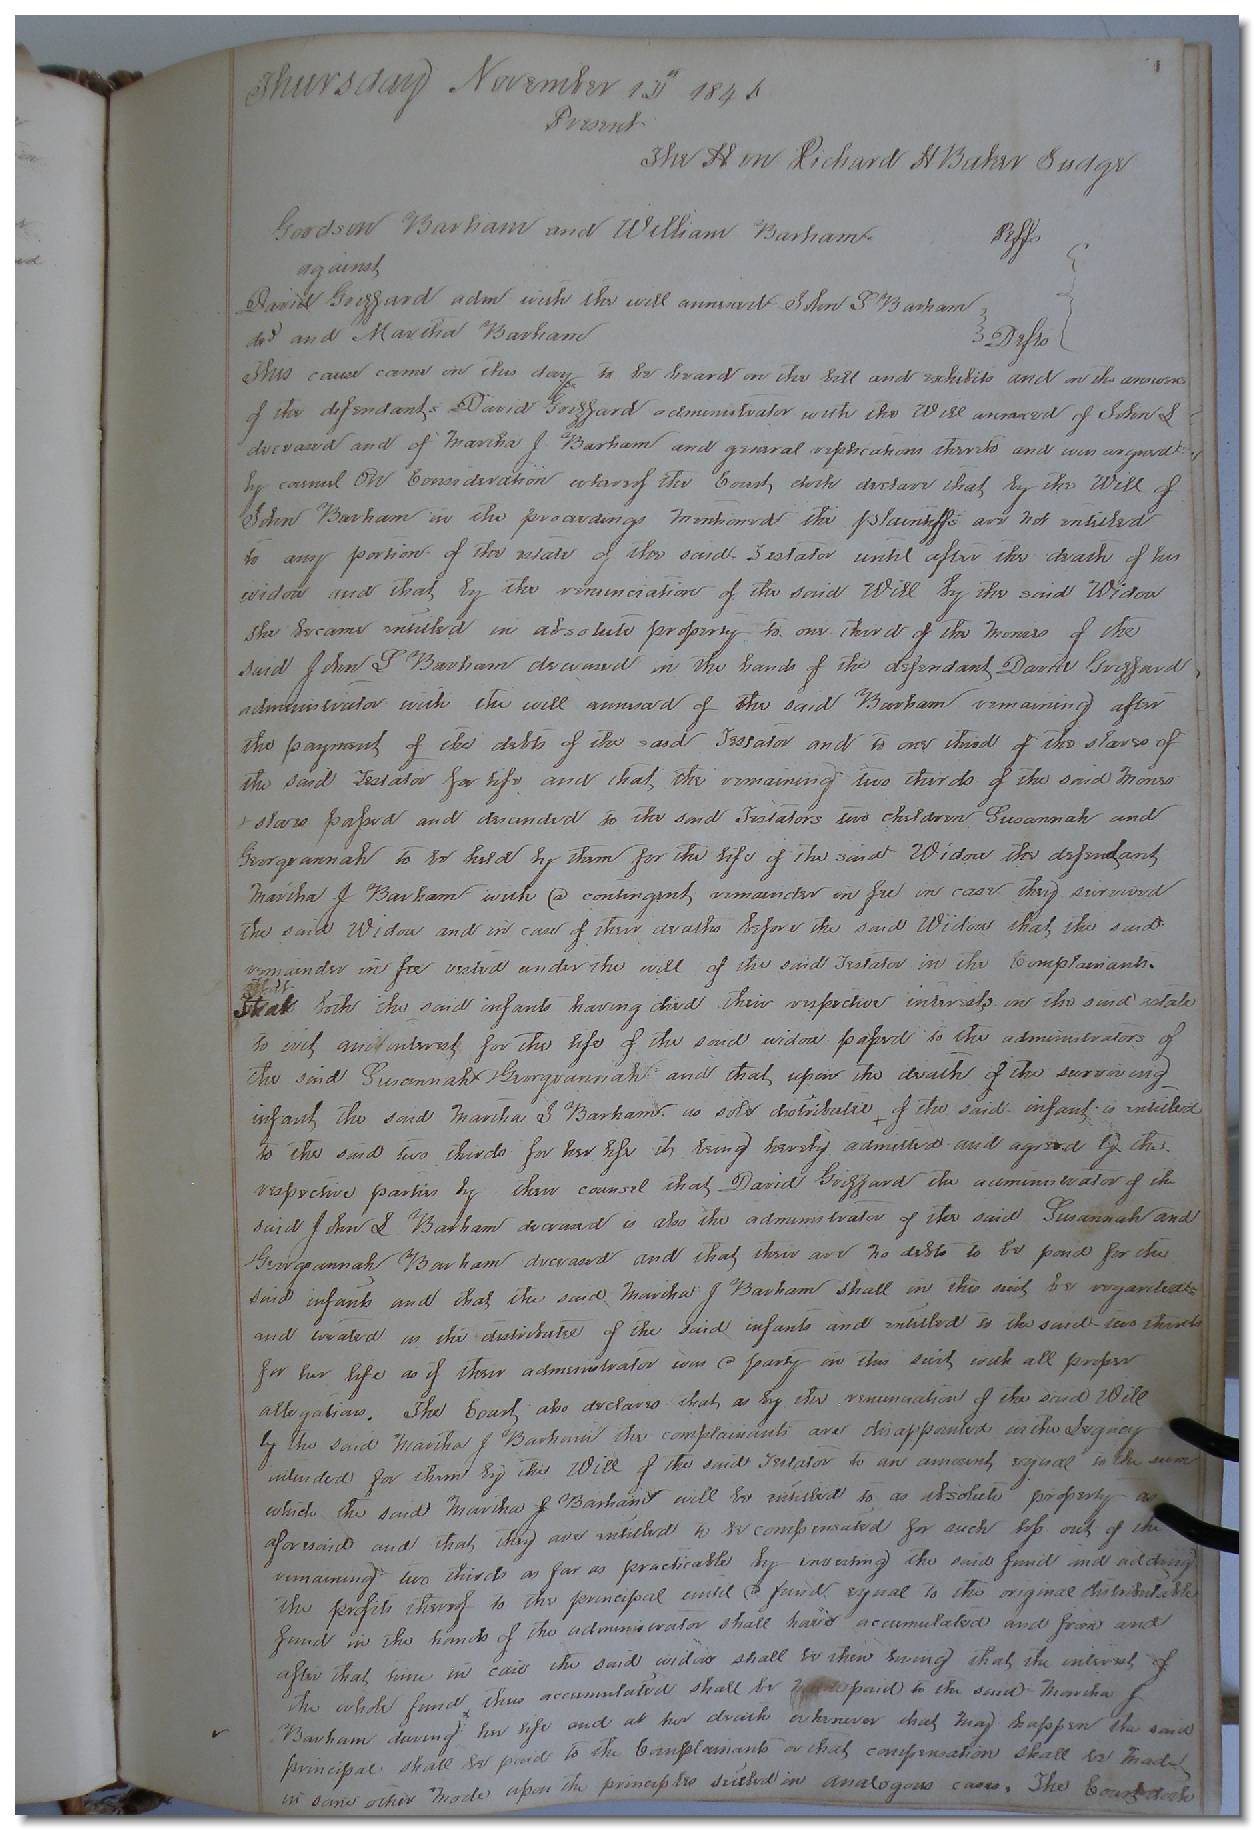 Thursday November 13th 184
Present
The Hon Richard H Baker Judge
Goodson Barham and William Barham Plffs
against
David Grizzard adm with the will annexed John S Barham
decd and Martha Barham Defts
This cause came on this day to be heard on the bill and exhibits and on the answers
of the defendants David Grizzard administrator with the Will annexed of John S
deceased and of Martha J Barham and general replications thereto and was argued
by counsel On Consideration whereof the Court doth declare that by the Will of
John Barham in the proceedings mentioned the plaintiffs are not entitled
to any portion of the estate of the said Testator until after the death of his
widow and that by the renunciation of the said Will by the said Widow
she became entitled in absolute property to one third of the monies of the
said John S Barham deceased in the hands of the defendant David Grizzard
administrator with the will annexed of the said Barham remaining after
the payment of the debts of the said Testator and to one third of the slaves of
the said Testator for life and that the remaining two thirds of the said Monies
+ slaves passed and descended to the said Testators two children Susannah and
Georgeannah to be held by them for the life of the said Widow the defendant
Martha J Barham with a contingent remainder in fee in case they survived
the said Widow and in case of their deaths before the said Widow that the said
remainder in fee vested under the will of the said Testator in the Complainants.
That both the said infants having died their respective interests in the said estate
to wit an interest for the life of the said widow passed to the administrators of
the said Susannah Georgeannah and that upon the death of the surviving
infant the said Martha J Barham as sole distributee of the said infant is entitled
to the said two thirds for her life it being hereby admitted and agreed by the
respective parties by their counsel that David Grizzard the administrator of the
said John S Barham deceased is also the administrator of the said Susannah and
Georgeannah Barham deceased and that there are no debts to be paid for the
said infants and that the said Martha J Barham shall in this suit be regarded
and treated as the distributee of the said infants and entitled to the said two thirds
for her life as if their administrator was a party in this suit with all proper
allegations. The Court also declares that as by the renunciation of the said Will
by the said Martha J Barham the complainants are disappointed in the Legacy
intended for them by the Will of the said Testator to an amount equal to the sum
which the said Martha J Barham will be entitled to as absolute property as
aforesaid and that they are entitled to be compensated for such loss out of the
remaining two thirds as far as practicable by investing the said fund and adding
the profits thereof to the principal until a fund equal to the original distributable
fund in the hands of the administrator shall have accumulated and from and
after that time in case the said widow shall be then living that the interest of
the whole fund thus accumulated shall be paid to the said Martha J
Barham during her life and at her death whenever that may happen the said
principal shall be paid to the Complainants or that compensation shall be made
in some other mode upon the principles settled in analogous cases. The Court doth